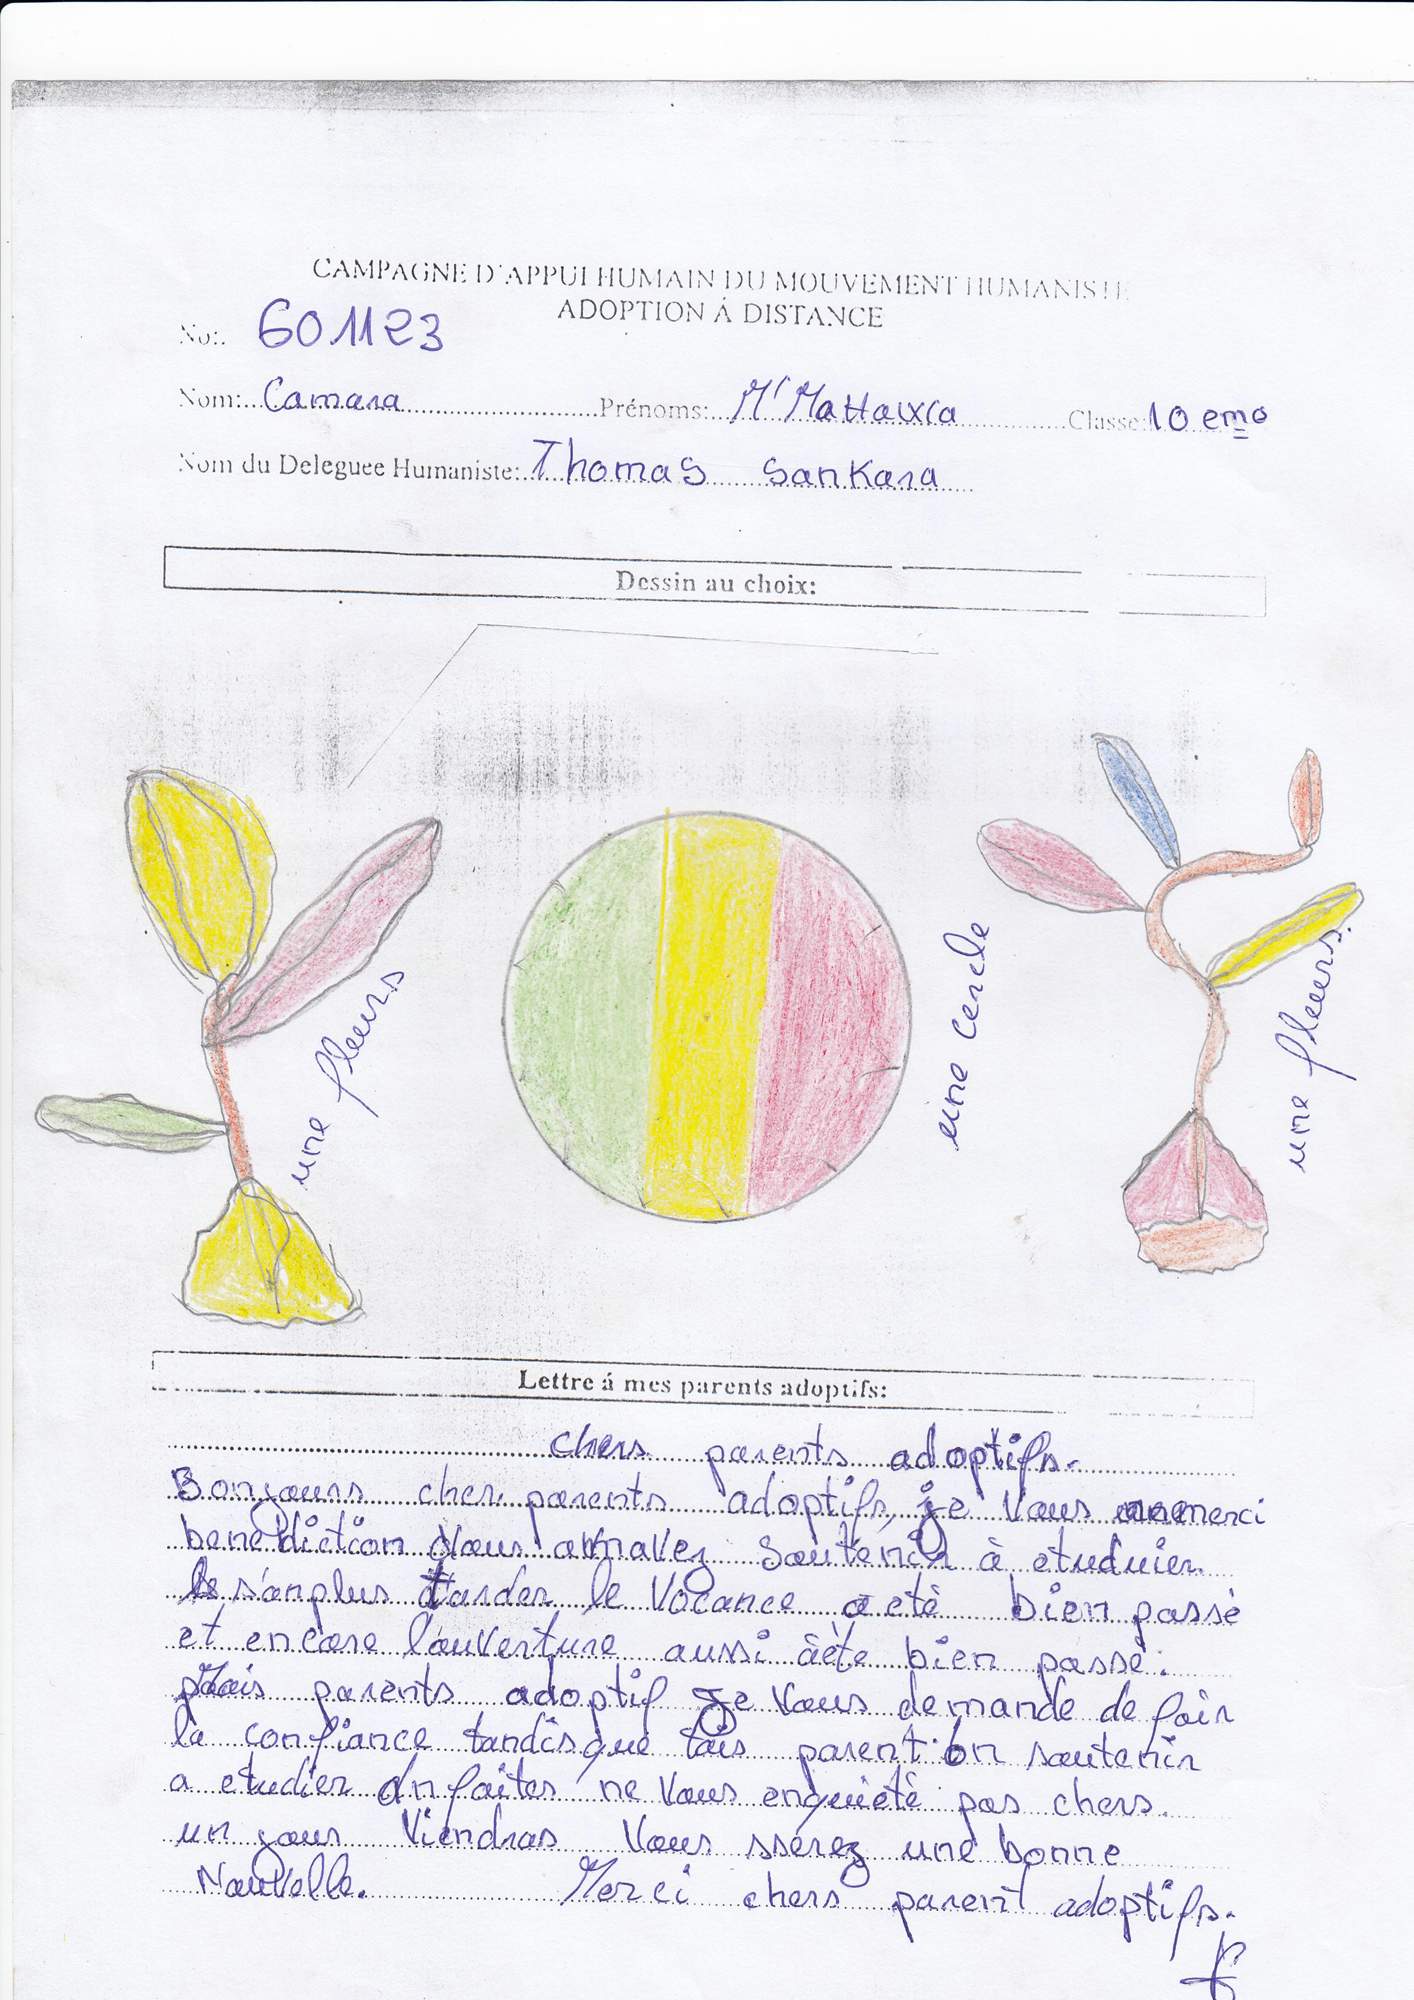 CAMPAGNE D'APPUI HUMAIN DU MOUVEMENT HUMANISTE
ADOPTION Á DISTANCE
No: 601123
Nom: Camara Prénoms: Classe: 10 eme
Nom du Deleguee Humaniste: Thomas Sankara
Dessin au choix:
une fleurs
une cercle
une fleurs.
Lettre á mes parents adoptifs:
chers parents adoptifs.
Bonjours cher parents adoptifs, je vous
benediction vous m'avez soutenir à etuduier
s'anplus tarder le vocance a eté bien passé
et encore l'ouverture aussi àéte bien passé.
Mais parents adoptif je vous demande de foir
la confiance tandisque parent on soutenir
a etudier faites ne vous enquiété pas chers.
un jour viendras vous sserez une bonne
Nouvelle. Merci chers parent adoptifs.